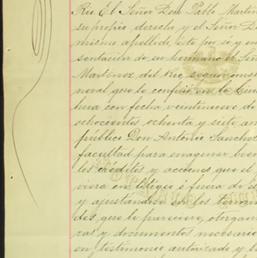 Rio El Señor Don Pablo Martin
su propio derecho y el Señor D
mismo apellido, este por si y en
sentacion de su hermano el Señ
Martinez del Rio segun consta
neral que le confirió en la Ciu
dura con fecha veintinueve de
ochocientos ochenta y siete an
público Don Antonio Sanchez
facultad para enagenar bien
les créditos y acciones que el
viera en litigio ó fuera de el
y ajustándose en los términ
dos que le parecieren, otorgan
ras y documentos necesarios
en testimonio autorizado y